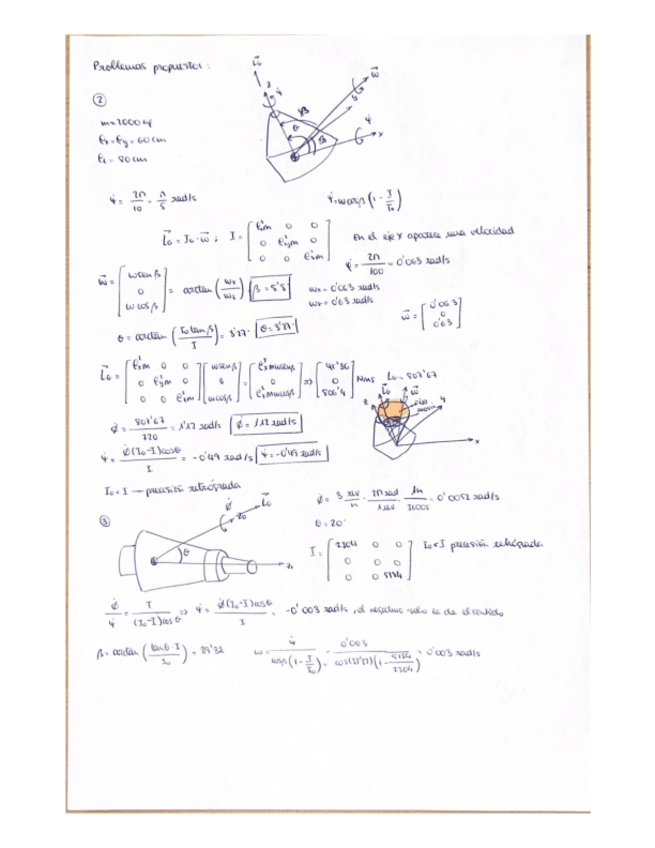 Problemas propuestos:
②
m=2000 kg
kx=ky=60cm
kz=80cm
L̄o
z
ψ̇
ω̄
θ
β
x
ψ̇ = 2π/10 = π/5 rad/s
ψ̇=ωcosβ(1-I/Io)
L̄o = Io·ω̄ ; I = [k²xm 0 0; 0 k²ym 0; 0 0 k²zm]
En el eje X aparece una velocidad
φ̇ = 2π/100 = 0'063 rad/s
ω̄ = [ω senβ; 0; ω cosβ] = arctan(ωx/ωz) β=5'5
ωx=0'063 rad/s
ωz=0'63 rad/s
ω̄ = [0'063; 0; 0'63]
θ = arctan(Io tanβ/I) = 3'27° θ=3'27°
L̄o = [k²xm 0 0; 0 k²ym 0; 0 0 k²zm] [ωsenβ; 0; ωcosβ] = [k²xmωsenβ; 0; k²zmωcosβ] ⇒ [45'36; 0; 806'4] Nms Lo=807'67
φ̇ = 807'67/720 = 1'12 rad/s φ̇=1'12 rad/s
ψ̇ = φ̇(Io-I)cosθ/I = -0'49 rad/s ψ̇=-0'49 rad/s
Io<I — precesión retrógrada
③
φ̇ = 3 rev/h · 2π rad/1 rev · 1h/3600s = 0'0052 rad/s
θ=20°
I = [2304 0 0; 0 0 0; 0 0 5184] Io<I precesión retrógrada
φ̇/ψ̇ = I/((Io-I)cosθ) ⇒ ψ̇ = φ̇(Io-I)cosθ/I = -0'003 rad/s, el negativo solo es de el sentido
β=arctan(tanθ·I/Io) = 39'32 ω = ψ̇/(cosβ(1-I/Io)) = 0'003/(1-5184/2304) = 0'003 rad/s